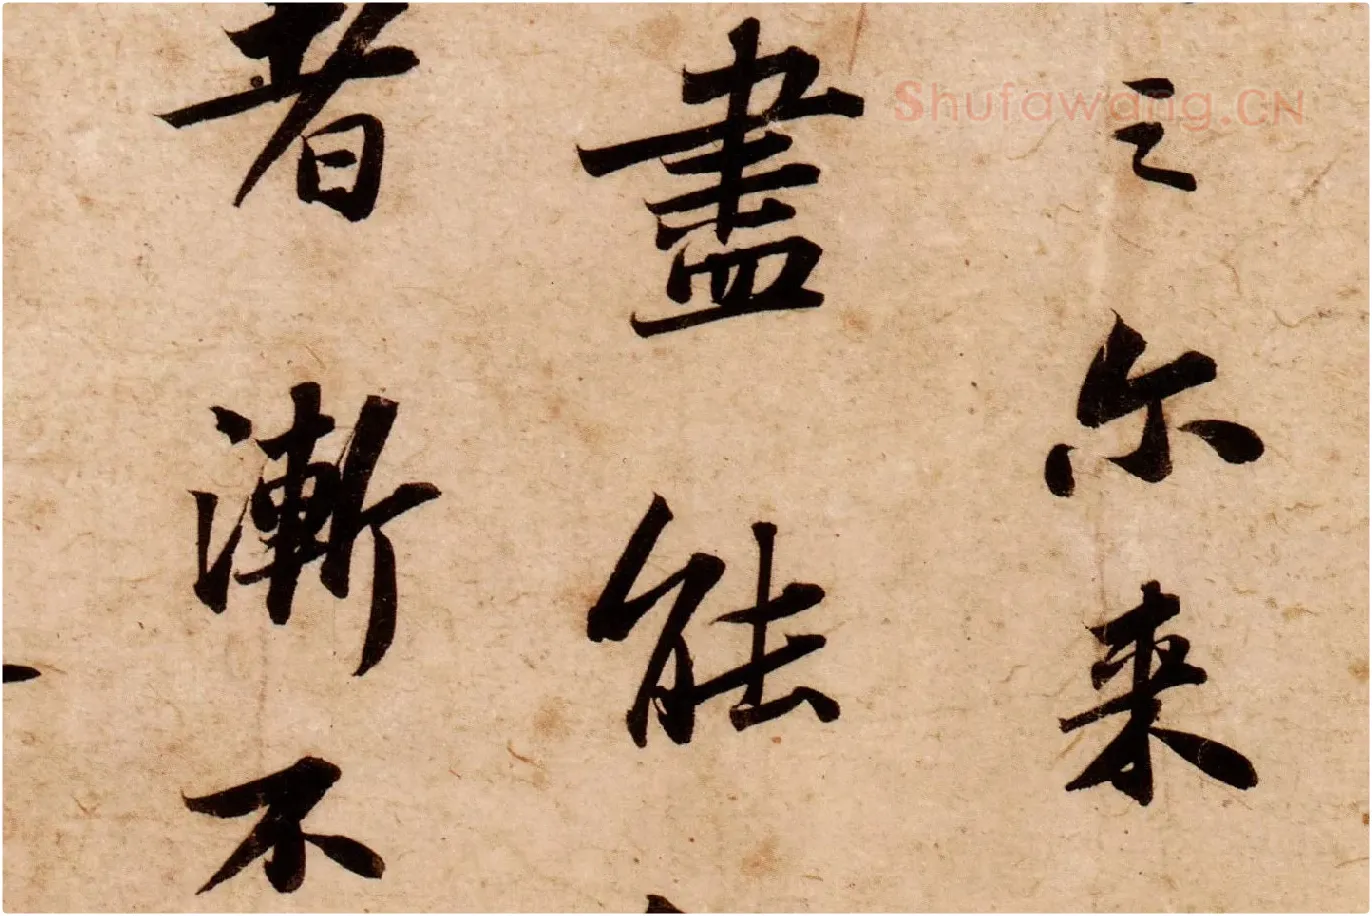 之尔来
盡能
者漸不
Shufawang.CN